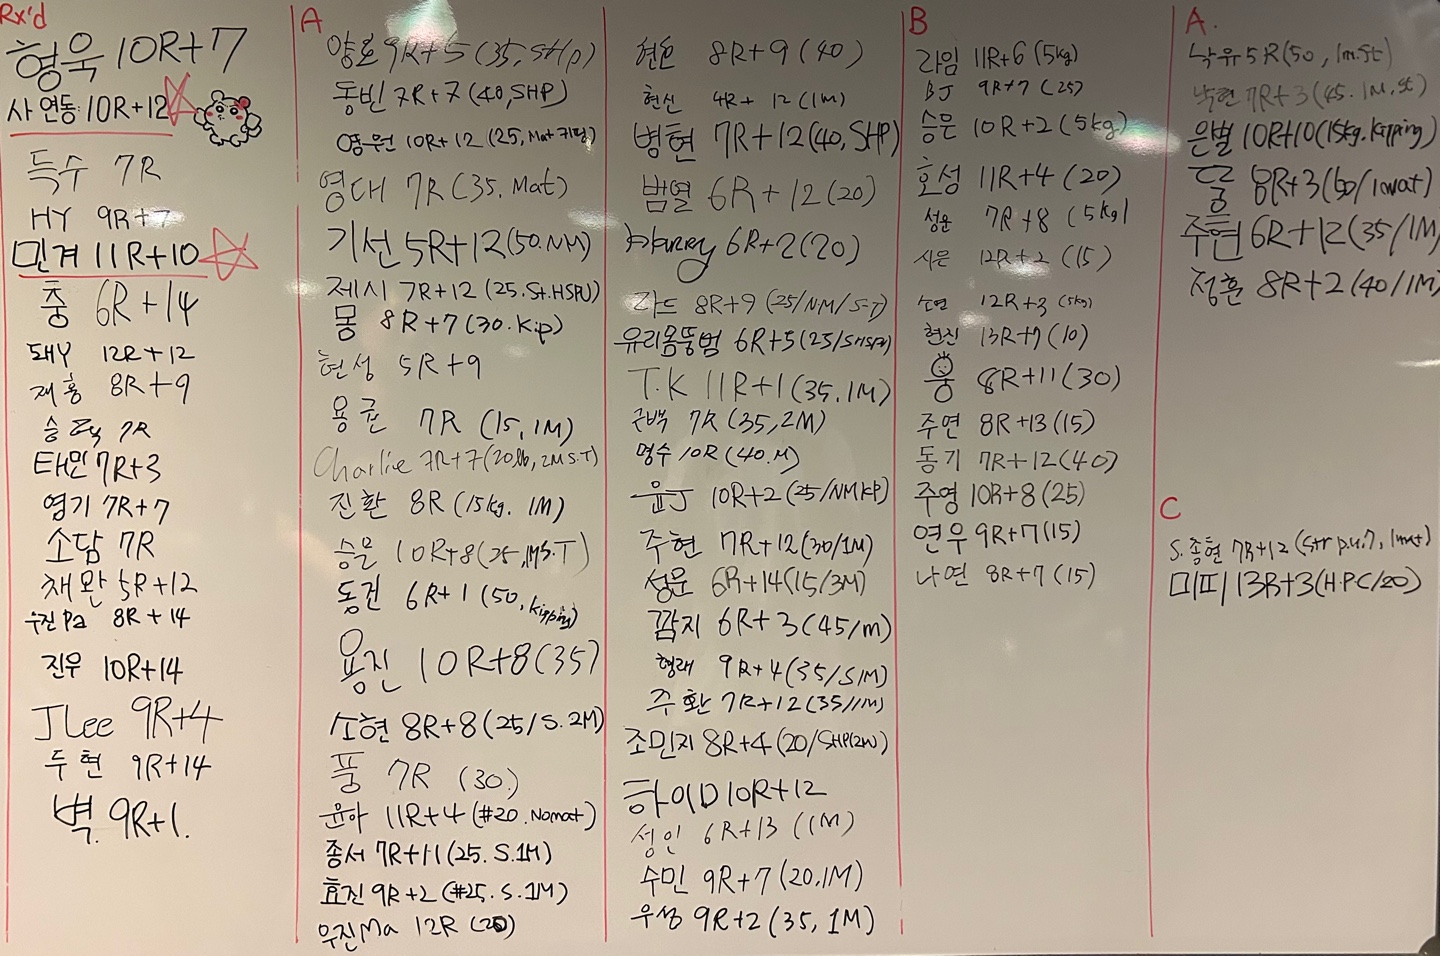 Rx'd
형욱 10R+7
사 연동: 10R+12
득수 7R
HY 9R+7
민겨 11R+10
충 6R+14
돼Y 12R+12
재홍 8R+9
승 7R
태민 7R+3
엽기 7R+7
소담 7R
채완 5R+12
수진 Pa 8R+14
진우 10R+14
JLee 9R+4
두현 9R+14
벽. 9R+1.
A
양로 9R+5 (35, SHp)
동빈 7R+7 (40, SHP)
영원 10R+12 (25, Mat 키핑)
영대 7R (35. Mat)
기선 5R+12 (50. NM)
제시 7R+12 (25. St. HSPU)
몽 8R+7 (30. Kip)
현성 5R+9
용균 7R (15, 1M)
Charlie 7R+7 (20lb, 2M S.T)
진환 8R (15kg. 1M)
승믈 10R+8 (25, 1M S.T)
동건 6R+1 (50, kipping)
용진 10R+8 (35)
소현 8R+8 (25/S. 2M)
풍 7R (30.)
윤아 11R+4 (#20. Nomat)
종서 7R+11 (25. S. 1M)
효진 9R+2 (#25. S. 1M)
우진Ma 12R (20)
8R+9 (40)
현신 4R+12 (1M)
병현 7R+12 (40, SHP)
범열 6R+12 (20)
Harry 6R+2 (20)
리드 8R+9 (25/NM/S-T)
유리몸뚱범 6R+5 (25/SHSPU)
T.K 11R+1 (35. 1M)
근백 7R (35, 2M)
명수 10R (40. M)
윤J 10R+2 (25/NM KP)
주현 7R+12 (30/1M)
성문 6R+14 (15/3M)
깜지 6R+3 (45/m)
형래 9R+4 (35/S1M)
주환 7R+12 (35/1M)
조민지 8R+4 (20/SHP(2M)
하이D 10R+12
성인 6R+13 (1M)
수민 9R+7 (20.1M)
우성 9R+2 (35, 1M)
B
라임 11R+6 (5kg)
BJ 9R+7 (25)
승은 10R+2 (5kg)
호성 11R+4 (20)
성문 7R+8 (5kg)
시은 12R+2 (15)
소연 12R+3 (5kg)
현진 13R+7 (10)
웅 8R+11 (30)
주연 8R+13 (15)
동기 7R+12 (40)
주영 10R+8 (25)
연우 9R+7 (15)
나연 8R+7 (15)
A.
낙유 5R (50, 1m. St)
낙현 7R+3 (45. 1M, St)
은별 10R+10 (15kg. kipping)
8R+3 (50/1mat)
주현 6R+12 (35/1M)
정훈 8R+2 (40/1M)
C
S. 종현 7R+12 (Str p.u. 7, 1mat)
미피 13R+3 (H.P.C/20)